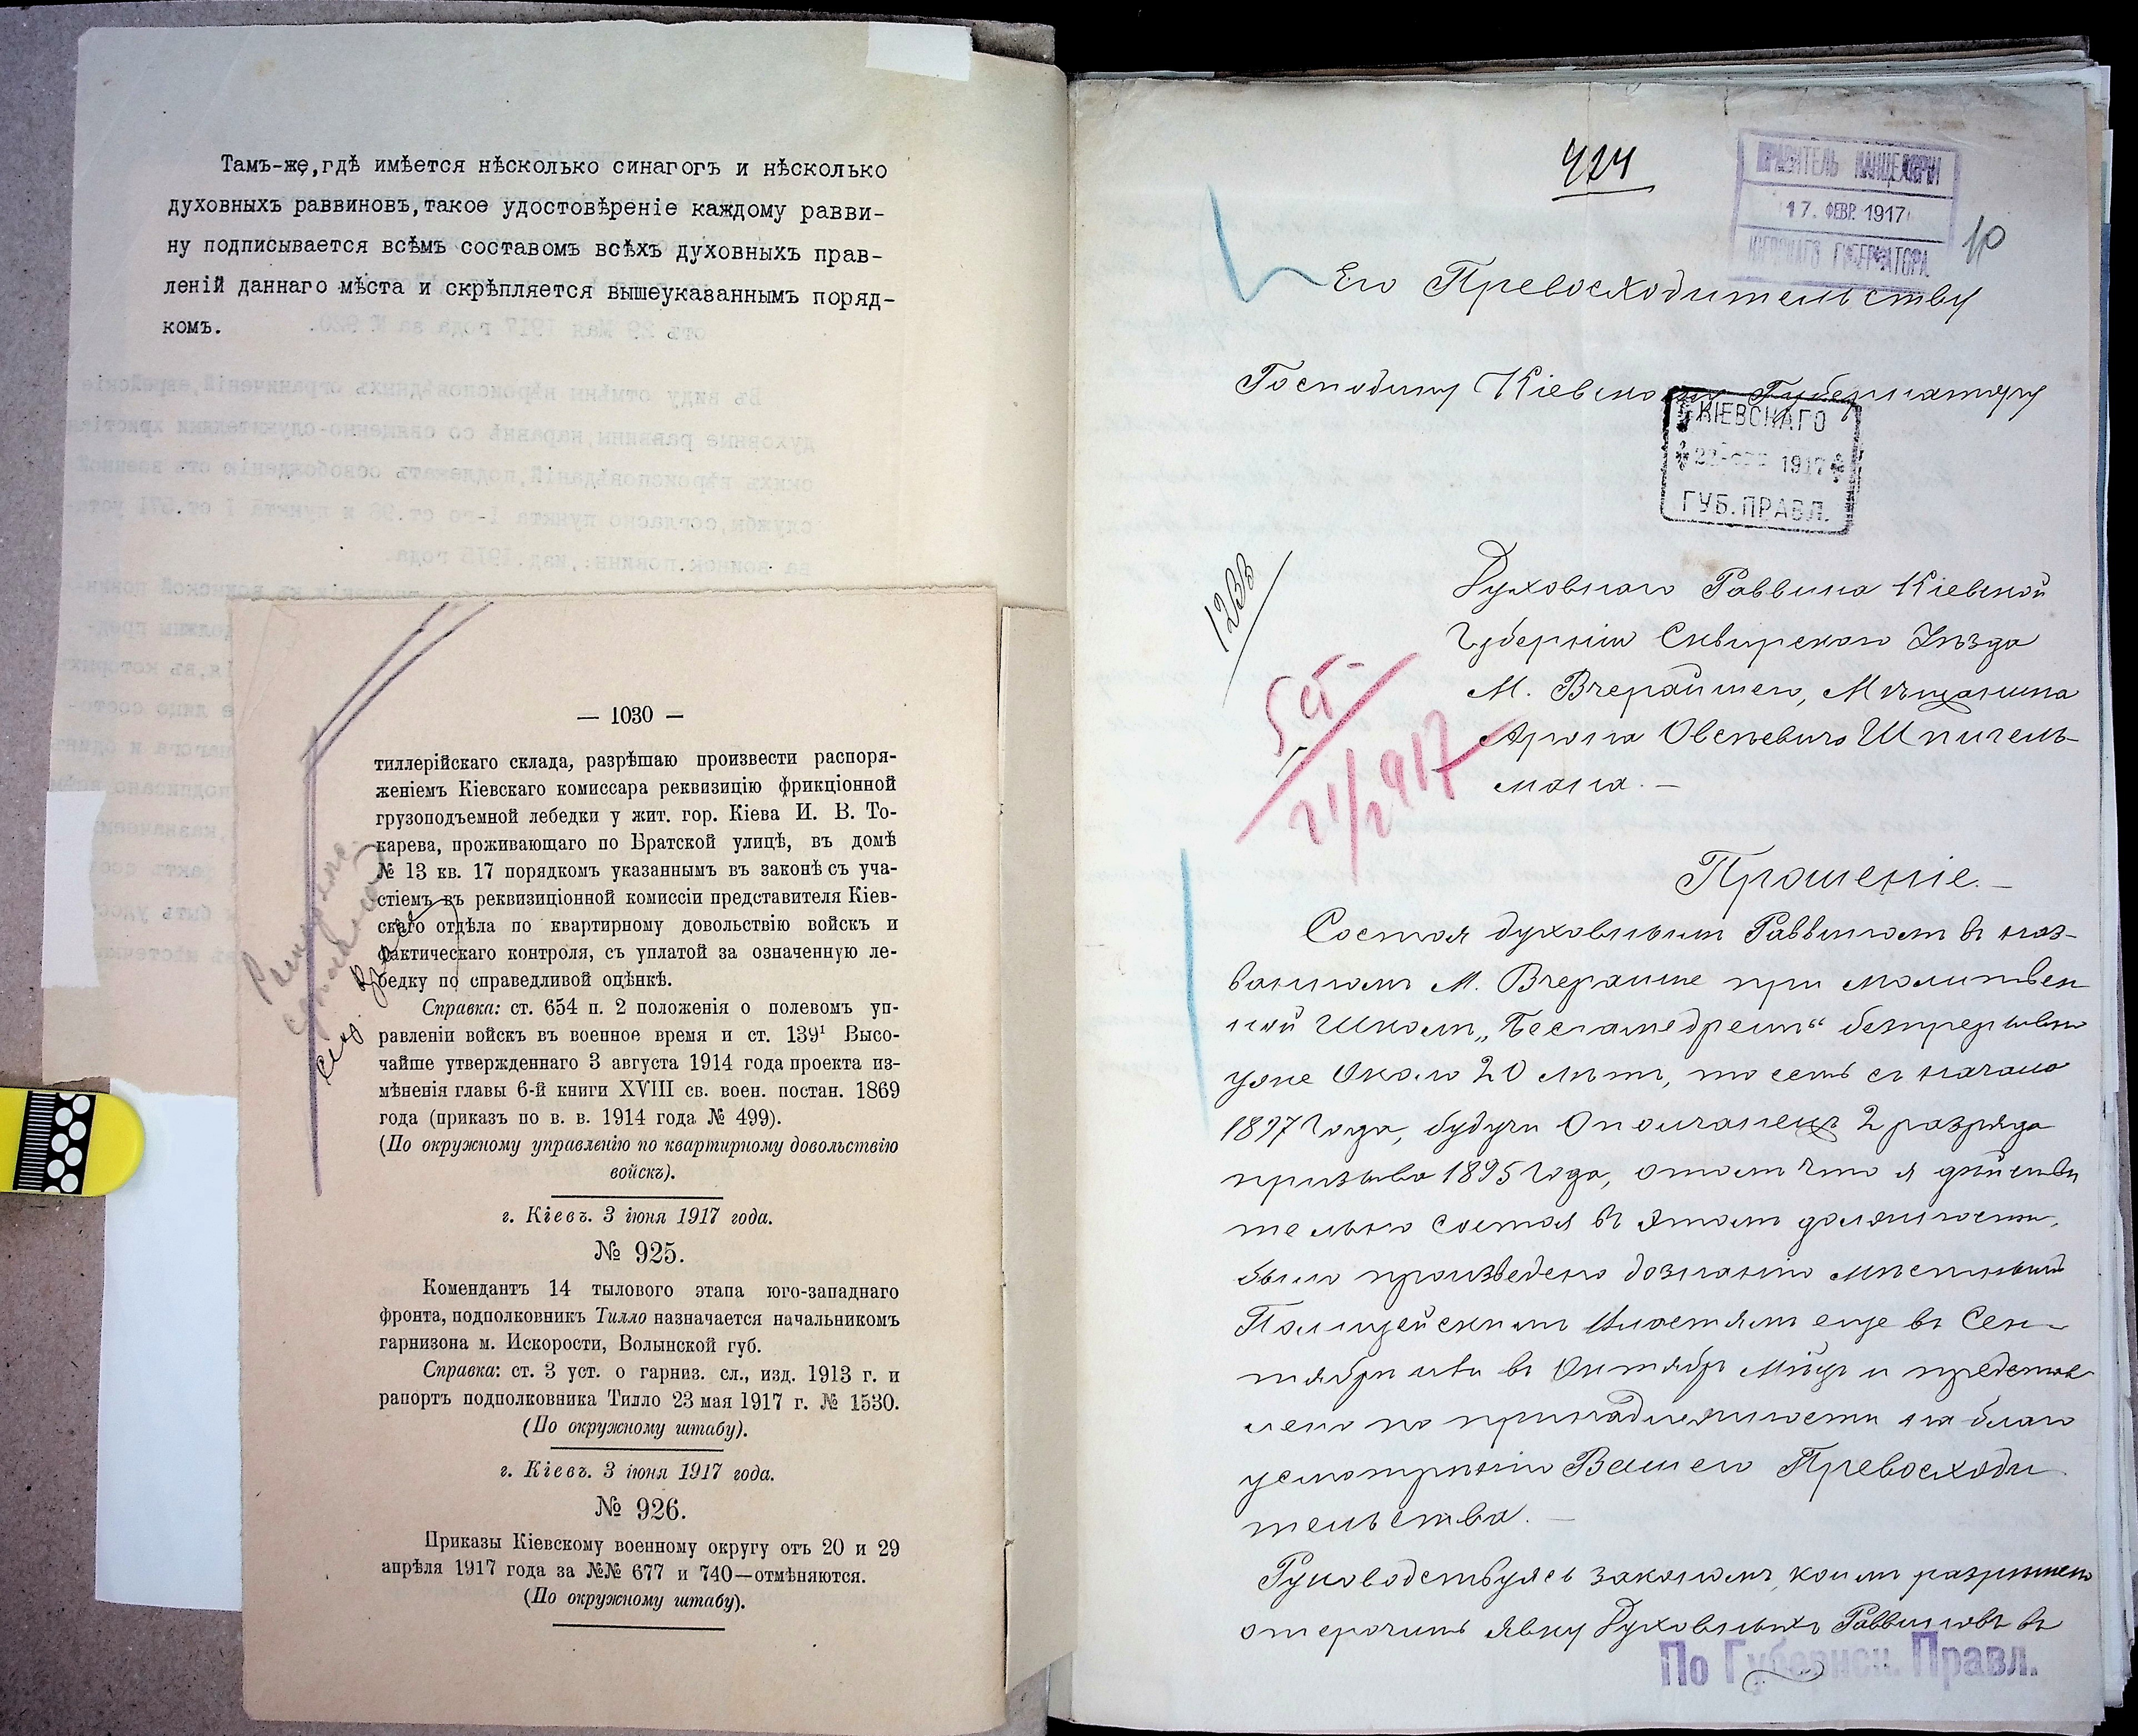 Тамъ-же,гдѣ имѣется нѣсколько синагогъ и нѣсколько
духовныхъ раввиновъ,такое удостовѣреніе каждому равви-
ну подписывается всѣмъ составомъ всѣхъ духовныхъ прав-
леній даннаго мѣста и скрѣпляется вышеуказаннымъ поряд-
комъ.
— 1030 —
тиллерійскаго склада, разрѣшаю произвести распоря-
женіемъ Кіевскаго комиссара реквизицію фрикціонной
грузоподъемной лебедки у жит. гор. Кіева И. В. То-
карева, проживающаго по Братской улицѣ, въ домѣ
№ 13 кв. 17 порядкомъ указаннымъ въ законѣ съ уча-
стіемъ въ реквизиціонной комиссіи представителя Кіев-
скаго отдѣла по квартирному довольствію войскъ и
фактическаго контроля, съ уплатой за означенную ле-
бедку по справедливой оцѣнкѣ.
Справка: ст. 654 п. 2 положенія о полевомъ уп-
равленіи войскъ въ военное время и ст. 139¹ Высо-
чайше утвержденнаго 3 августа 1914 года проекта из-
мѣненія главы 6-й книги XVIII св. воен. постан. 1869
года (приказъ по в. в. 1914 года № 499).
(По окружному управленію по квартирному довольствію
войскъ).
г. Кіевъ. 3 іюня 1917 года.
№ 925.
Комендантъ 14 тылового этапа юго-западнаго
фронта, подполковникъ Тилло назначается начальникомъ
гарнизона м. Искорости, Волынской губ.
Справка: ст. 3 уст. о гарниз. сл., изд. 1913 г. и
рапортъ подполковника Тилло 23 мая 1917 г. № 1530.
(По окружному штабу).
г. Кіевъ. 3 іюня 1917 года.
№ 926.
Приказы Кіевскому военному округу отъ 20 и 29
апрѣля 1917 года за №№ 677 и 740—отмѣняются.
(По окружному штабу).
424
ПРАВИТЕЛЬ КАНЦЕЛЯРІИ
17. ФЕВР. 1917
КІЕВСКАГО ГУБЕРНАТОРА
10
Его Превосходительству
Господину Кіевскому Губернатору
КІЕВСКАГО
1917
ГУБ. ПРАВЛ.
Духовнаго Раввина Кіевской
Губерніи Сквирскаго Уѣзда
М. Вчерайшаго, Мѣщанина
Арона Овсѣевича Шпигель-
мана. —
5 ст
21/2 917
Прошеніе. —
Состоя духовнымъ Раввиномъ въ наз-
ванномъ М. Вчерайше при молитвен
ной Школѣ „Бесгамедрешъ“ безпрерывно
уже Около 20 лѣтъ, то есть съ начала
1897 Года, будучи Ополченецъ 2 разряда
призыва 1895 Года, о томъ что я дѣйстви
тельно состоя въ этой должности,
было произведено дознаніе мѣстнымъ
Полицейскимъ Властямъ еще въ Сен-
тябрѣ или въ Октябрѣ Мѣцѣ и представ
лено по принадлежности на благо
усмотрѣніе Вашего Превосходи
тельства. —
Руководствуясь закономъ, коимъ разрѣшено
отсрочить явку Духовныхъ Раввиновъ въ
По Губернск. Правл.